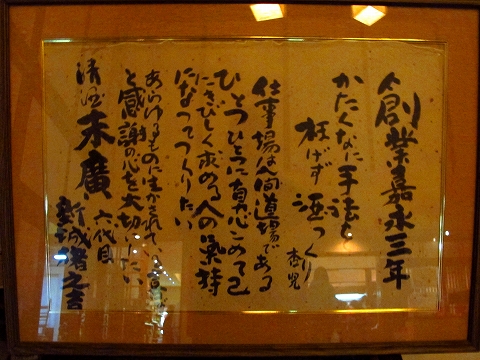 創業嘉永三年
かたくなに手法を
枉げず酒つくり
杏児
仕事場は人間道場である
ひとつひとつに真心こめて己
にきびしく求める人の氣持
になってつくりたい
あらゆるものに生かされている
と感謝の心を大切にしたい
清酒末廣 六代目
新城猪之吉